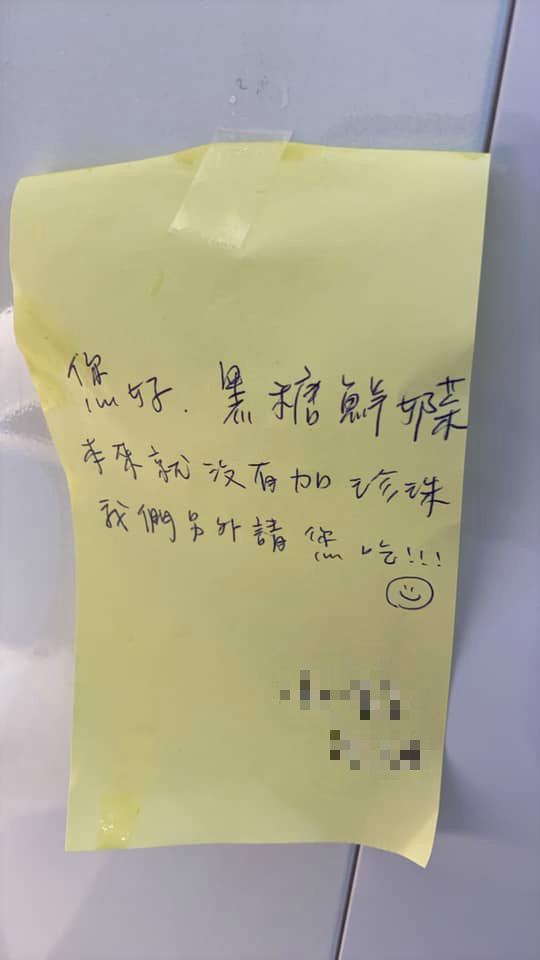 您好.黑糖鮮奶茶
本來就沒有加珍珠
我們另外請您吃!!!